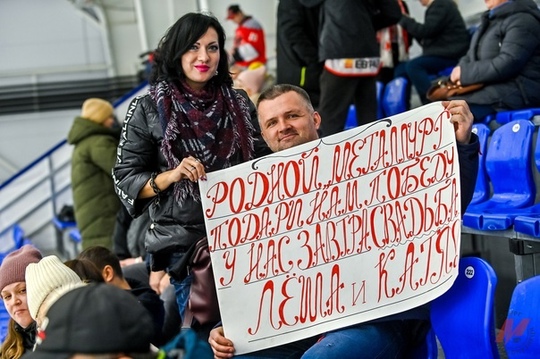 РОДНОЙ „МЕТАЛЛУРГ"
ПОДАРИ НАМ ПОБЕДУ
У НАС ЗАВТРА СВАДЬБА
ЛЁША И КАТЯ